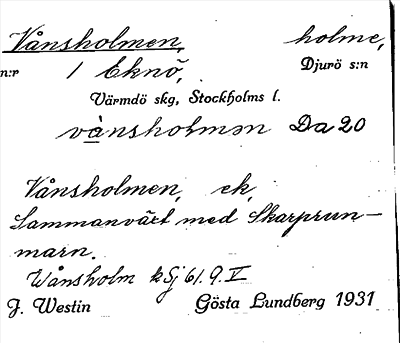 Vånsholmen, holme,
n:r 1 Eknö, Djurö s:n
Värmdö skg, Stockholms l.
vånshoḷmən Da 20
Vånsholmen, ek,
Sammanväxt med Skarprun-
marn.
Wånsholm 61. 9. V
J. Westin Gösta Lundberg 1931